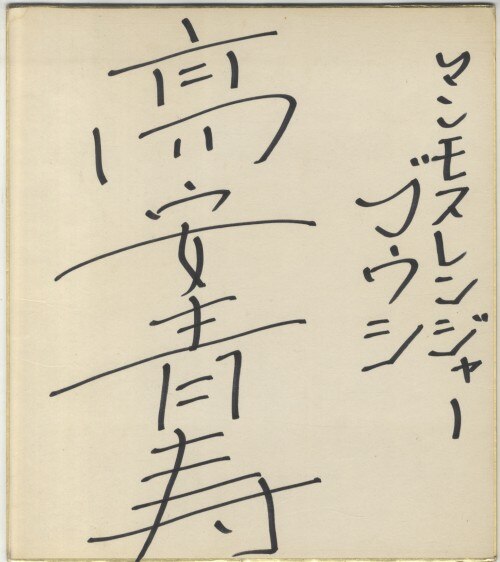 マンモスレンジャー
ゴウシ
高安青寿